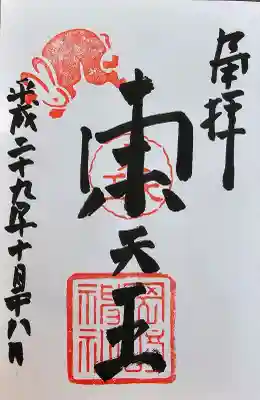 奉拝
東天王
岡崎
神社
平成二十九年十月廿八日